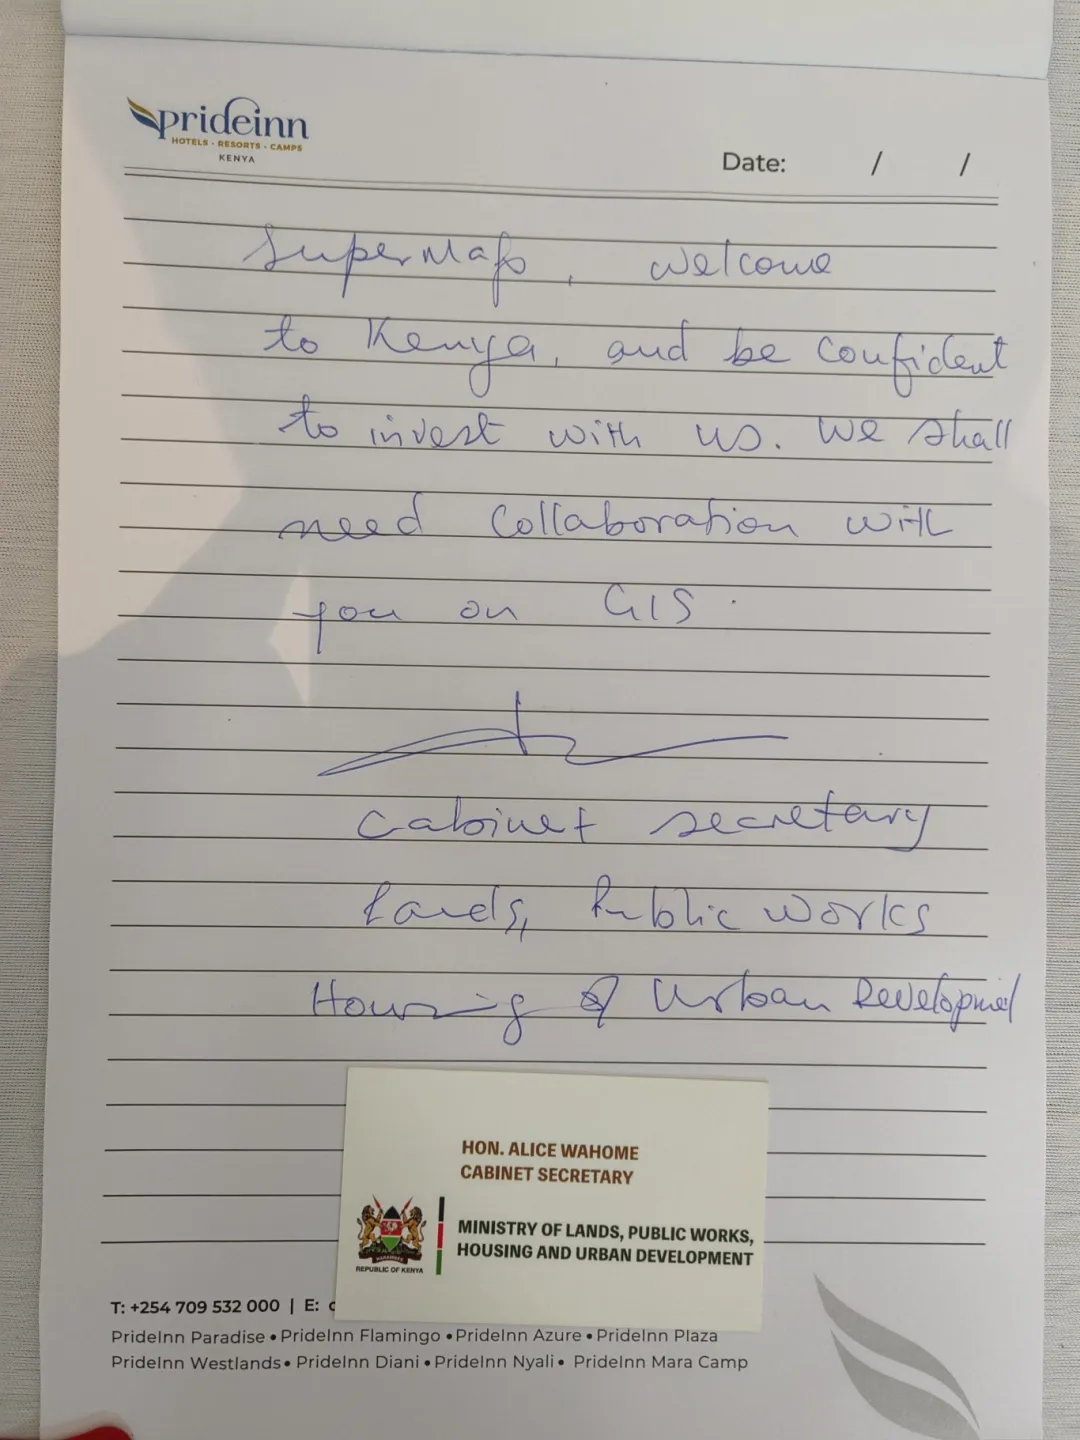 prideinn
HOTELS • RESORTS • CAMPS
KENYA
Date: / /
SuperMap, welcome
to Kenya, and be confident
to invest with us. We shall
need collaboration with
you on GIS.
Cabinet secretary
Lands, Public Works
Housing & Urban Development
HON. ALICE WAHOME
CABINET SECRETARY
MINISTRY OF LANDS, PUBLIC WORKS,
HOUSING AND URBAN DEVELOPMENT
HARAMBEE
REPUBLIC OF KENYA
T: +254 709 532 000 | E:
PrideInn Paradise • PrideInn Flamingo • PrideInn Azure • PrideInn Plaza
PrideInn Westlands • PrideInn Diani • PrideInn Nyali • PrideInn Mara Camp